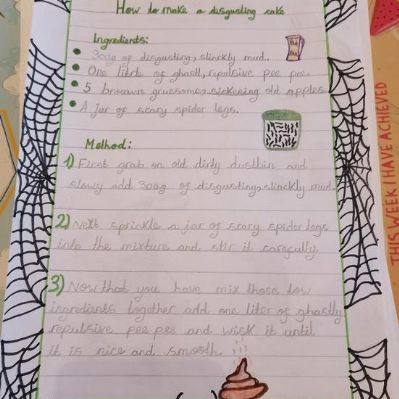 How to make a disgusting cake
Ingredients:
300g of disgusting, slinckly mud.
One litre of ghastl, repulsive pee pee.
5 broawn gruesome, sickening old apples
A jar of scary spider legs.
Method:
1) First grab an old dirty dustbin and
slowy add 300g of disgusting, slinckly mud.
2) Next sprinkle a jar of scary spider legs
into the mixture and stir it carefully.
3) Now that you have mix those tow
ingredients together add one liter of ghastly
repulsive pee pee and wisk it until
it is nice and smooth.
THIS WEEK I HAVE ACHIEVED